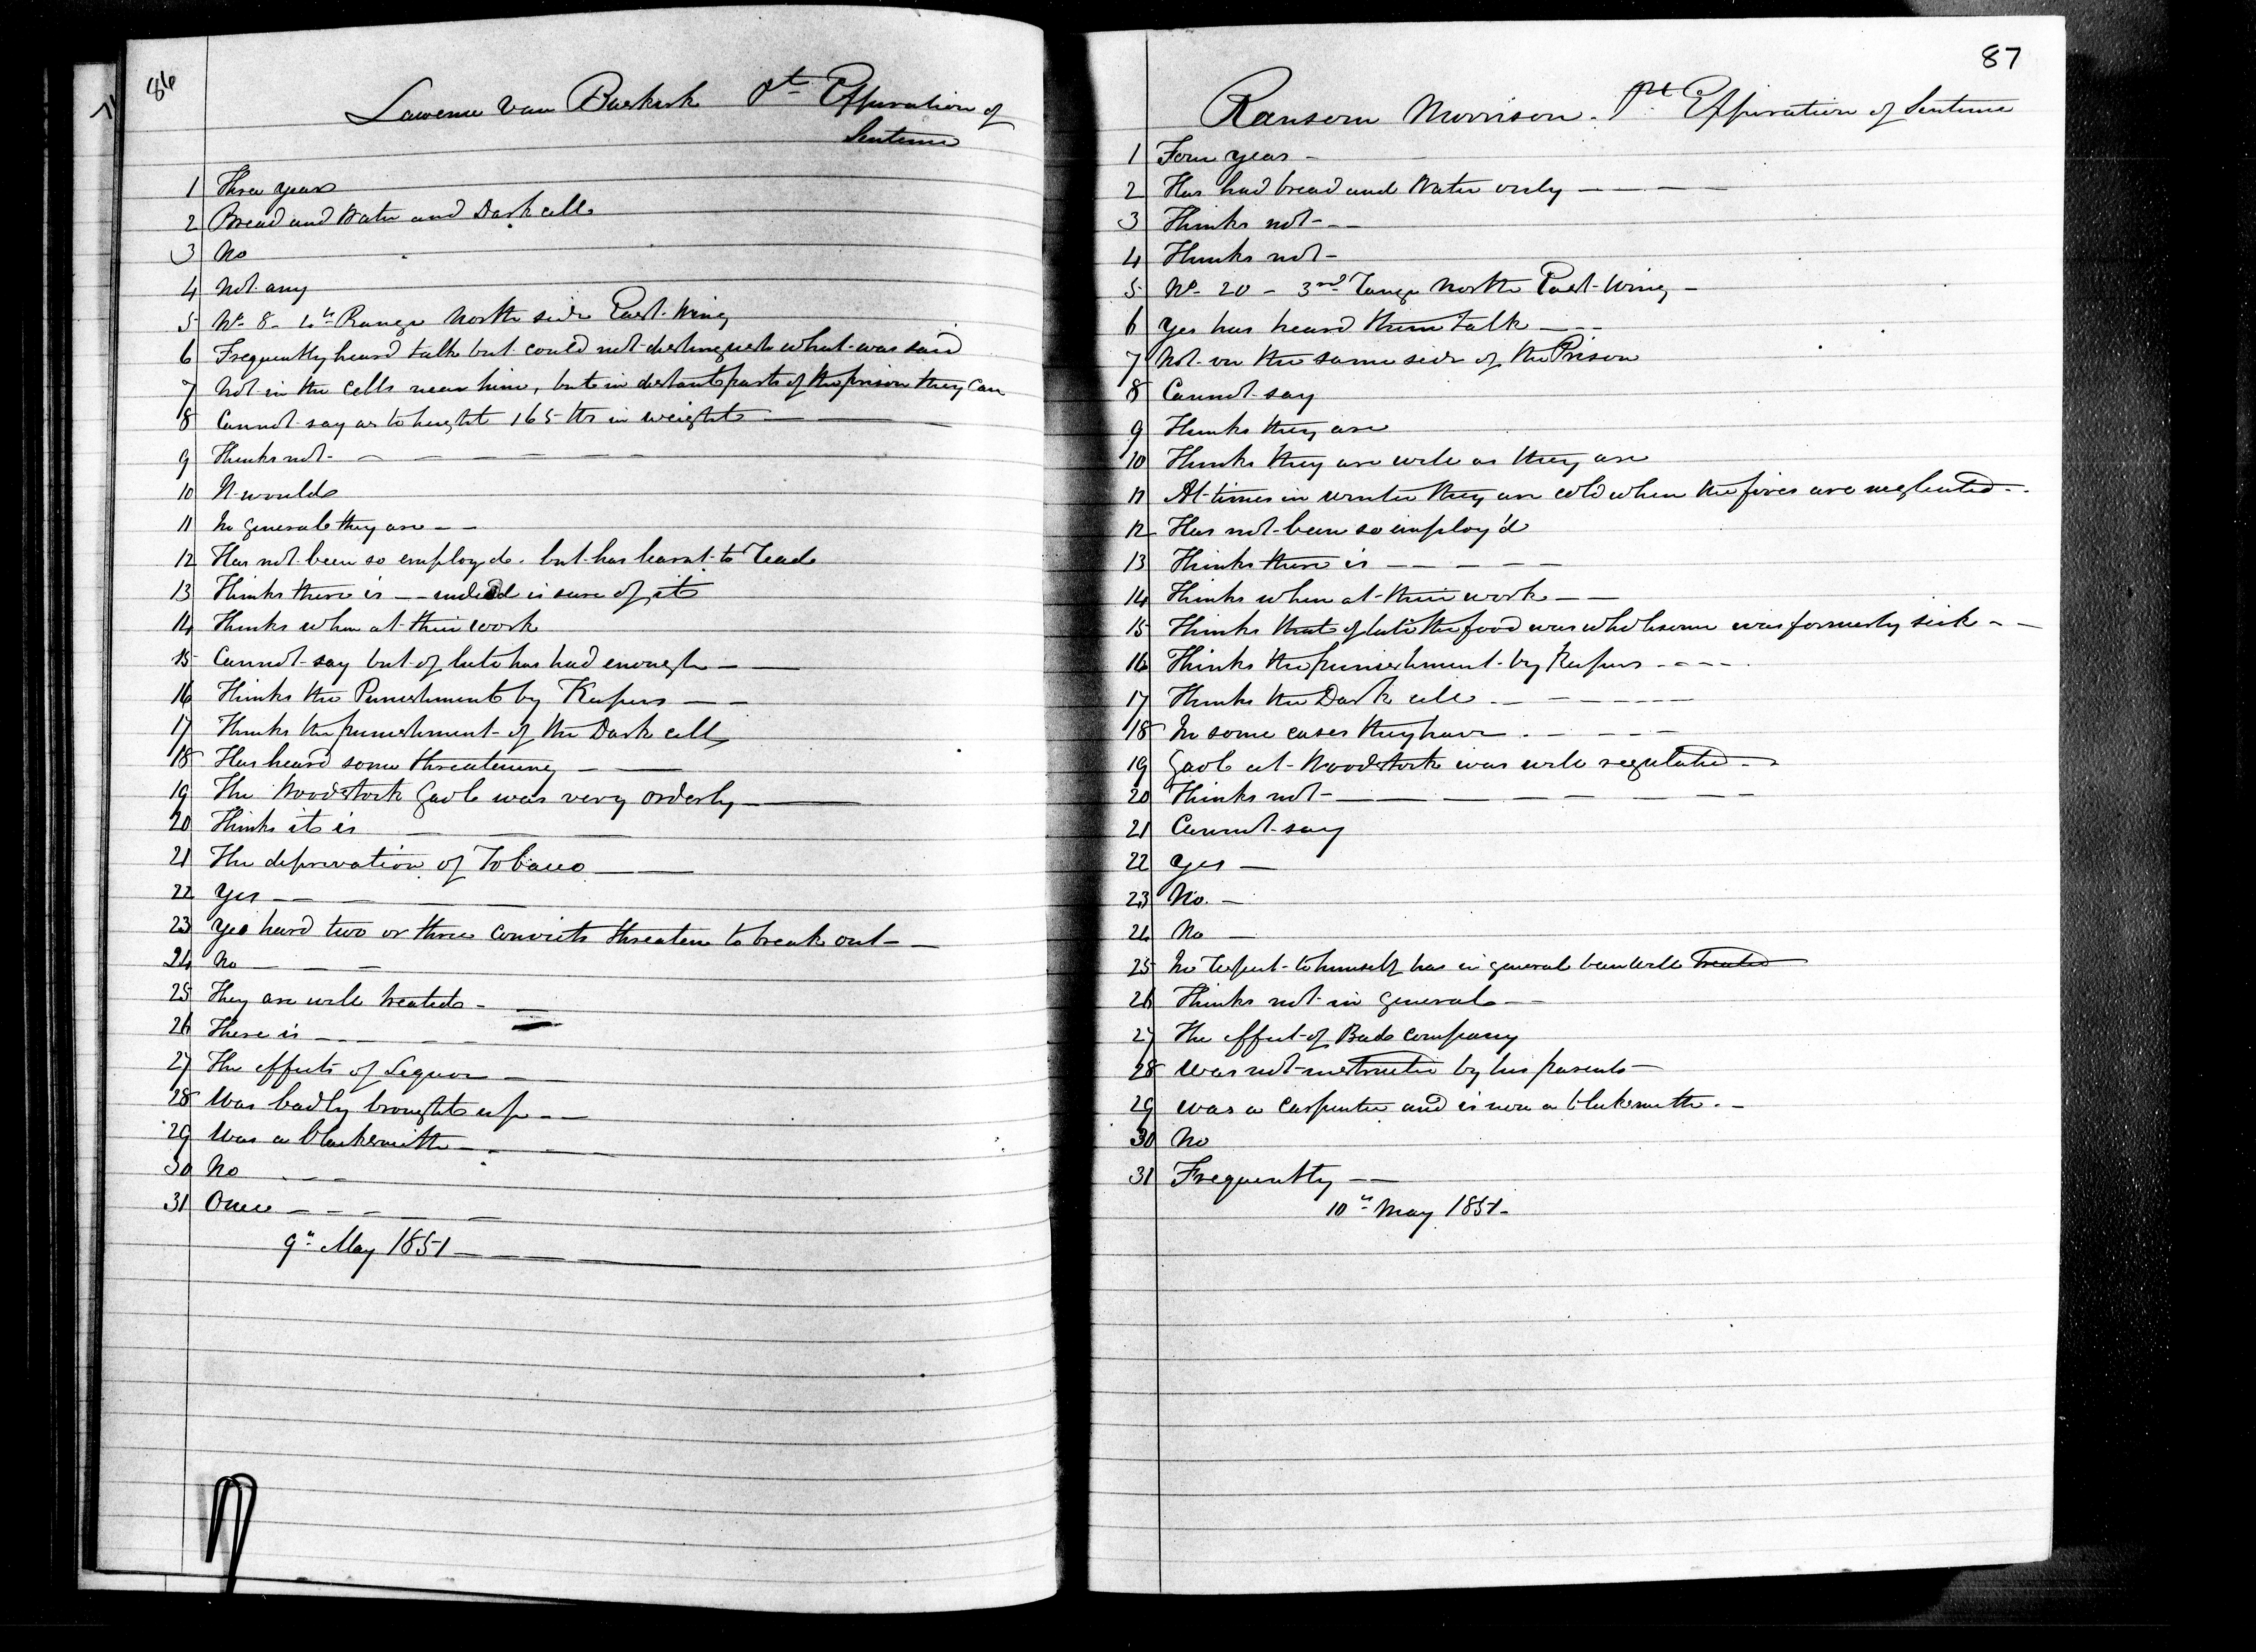 86
Lawrence Van Buskirk pr Expiration of
Sentence
1 Three years
2 Bread and Water and Dark cell
3 No
4 Not any
5 No 8 - 4th Range North side East Wing
6 Frequently heard talk but could not distinguish what was said
7 Not in the cells near him, but in distant parts of the prison they can
8 Cannot say as to height 165 lbs in weight
9 Thinks not
10 It would
11 In general they are
12 Has not been so employed. but has learnt to read
13 Thinks there is - indeed is sure of it
14 Thinks when at their work
15 Cannot say but of late has had enough
16 Thinks the Punishment by Keepers
17 Thinks the punishment of the Dark cell
18 Has heard some threatening
19 The Woodstock Gaol was very orderly
20 Thinks it is
21 The deprivation of Tobacco
22 Yes
23 Yes heard two or three convicts threaten to break out
24 No
25 They are well treated
26 There is
27 The effects of Liquor
28 Was badly brought up
29 Was a blacksmith
30 No
31 Once
9th May 1851
87
Ransom Morrison. pr Expiration of Sentence
1 Four years
2 Has had bread and Water only
3 Thinks not
4 Thinks not
5 No 20 - 3rd range North East Wing
6 Yes has heard them talk
7 Not on the same side of the Prison
8 Cannot say
9 Thinks they are
10 Thinks they are well as they are
11 At times in winter they are cold when the fires are neglected
12 Has not been so employ'd
13 Thinks there is
14 Thinks when at their work
15 Thinks that of late the food was wholesome was formerly sick
16 Thinks the punishment by Keepers
17 Thinks the Dark cell
18 In some cases they have
19 Gaol at Woodstock was well regulated
20 Thinks not
21 Cannot say
22 Yes
23 No
24 No
25 In respect to himself has in general been well treated
26 Thinks not in general
27 The effect of Bad company
28 Was not instructed by his parents
29 Was a Carpenter and is now a blacksmith.
30 No
31 Frequently
10th May 1851